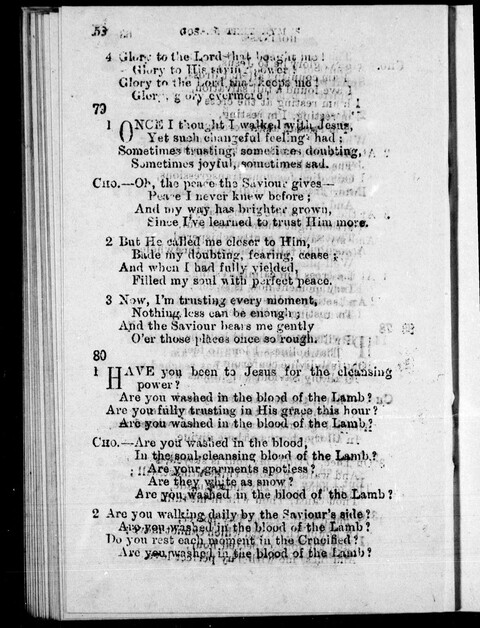 53
4 Glory to the Lord that bought me!
Glory to His saving power!
Glory to the Lord that keeps me!
Glory, glory evermore!
79
1 ONCE I thought I walked with Jesus,
Yet such changeful feelings had;
Sometimes trusting, sometimes doubting,
Sometimes joyful, sometimes sad.
CHO.—Oh, the peace the Saviour gives—
Peace I never knew before;
And my way has brighter grown,
Since I've learned to trust Him more.
2 But He called me closer to Him,
Bade my doubting, fearing, cease;
And when I had fully yielded,
Filled my soul with perfect peace.
3 Now, I'm trusting every moment,
Nothing less can be enough;
And the Saviour bears me gently
O'er those places once so rough.
80
1 HAVE you been to Jesus for the cleansing
power?
Are you washed in the blood of the Lamb?
Are you fully trusting in His grace this hour?
Are you washed in the blood of the Lamb?
CHO.—Are you washed in the blood,
In the soul-cleansing blood of the Lamb?
Are your garments spotless?
Are they white as snow?
Are you washed in the blood of the Lamb?
2 Are you walking daily by the Saviour's side?
Are you washed in the blood of the Lamb?
Do you rest each moment in the Crucified?
Are you washed in the blood of the Lamb?